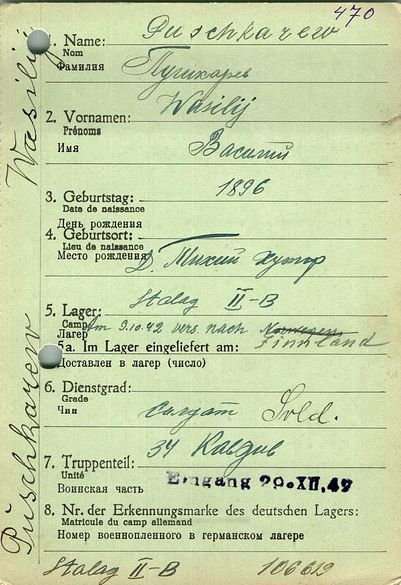 470
1. Name: Puschkarew
Nom
Фамилия Пушкарев
Wasilij
2. Vornamen:
Prénoms
Имя Василий
3. Geburtstag: 1896
Date de naissance
День рождения
4. Geburtsort:
Lieu de naissance
Место рождения Д. Тихий хутор
5. Lager: Stalag II-B
Camp
Лагерь Am 9.10.42 vers. nach Norwegen
5a. Im Lager eingeliefert am: Finnland
Доставлен в лагерь (число)
6. Dienstgrad:
Grade
Чин солдат Sold.
7. Truppenteil: 34
Unité Eingang 29.XII.47
Воинская часть
8. Nr. der Erkennungsmarke des deutschen Lagers:
Matricule du camp allemand
Номер военнопленного в германском лагере
Stalag II-B 106619
Puschkarew Wasilij